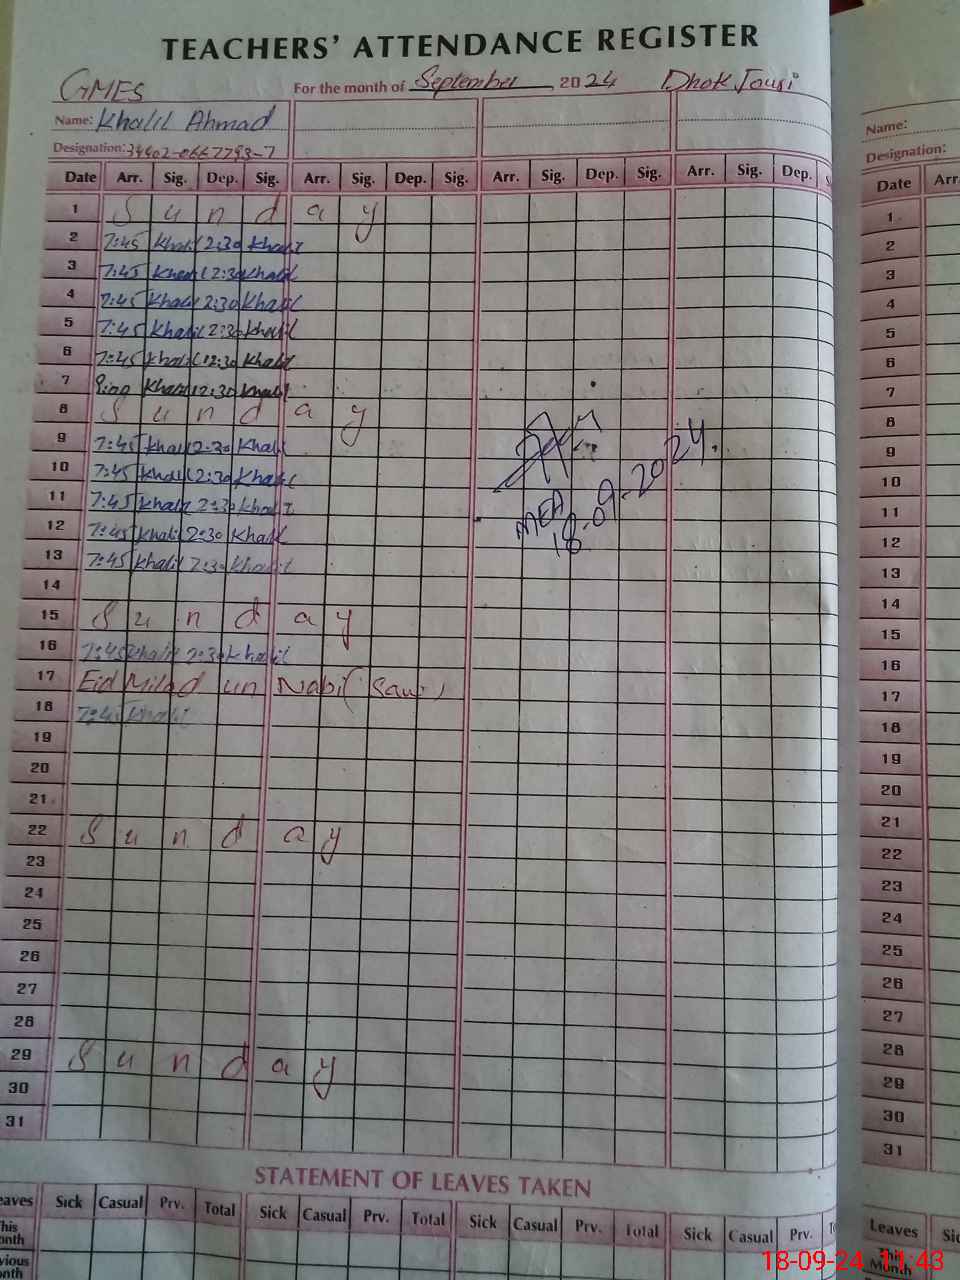 TEACHERS' ATTENDANCE REGISTER
GMES For the month of September 2024 Dhok Jousi
Name: Khalil Ahmad
Designation: 34402-0667793-7
Date Arr. Sig. Dep. Sig. Arr. Sig. Dep. Sig. Arr. Sig. Dep. Sig. Arr. Sig. Dep.
1 Sunday
2 7:45 Khalil 2:30 Khalil
3 7:45 Khalil 2:30 Khalil
4 7:45 Khalil 2:30 Khalil
5 7:45 Khalil 2:30 Khalil
6 7:45 Khalil 12:30 Khalil
7 Khalil 12:30 Khalil
8 Sunday
9 7:45 Khalil 2:30 Khalil
10 7:45 Khalil 2:30 Khalil
11 7:45 Khalil 2:30 Khalil
12 7:45 Khalil 2:30 Khalil
13 7:45 Khalil 2:30 Khalil
14
15 Sunday
16 7:45 Khalil 2:30 Khalil
17 Eid Milad un Nabi (Saw)
18 7:45 Khalil
19
20
21
22 Sunday
23
24
25
26
27
28
29 Sunday
30
31
MEA
18-09-2024.
STATEMENT OF LEAVES TAKEN
Leaves Sick Casual Prv. Total Sick Casual Prv. Total Sick Casual Prv. Total Sick Casual Prv.
This Month
Name:
Designation:
Date Arr.
1
2
3
4
5
6
7
8
9
10
11
12
13
14
15
16
17
18
19
20
21
22
23
24
25
26
27
28
29
30
31
Leaves
This Month
18-09-24 11:43